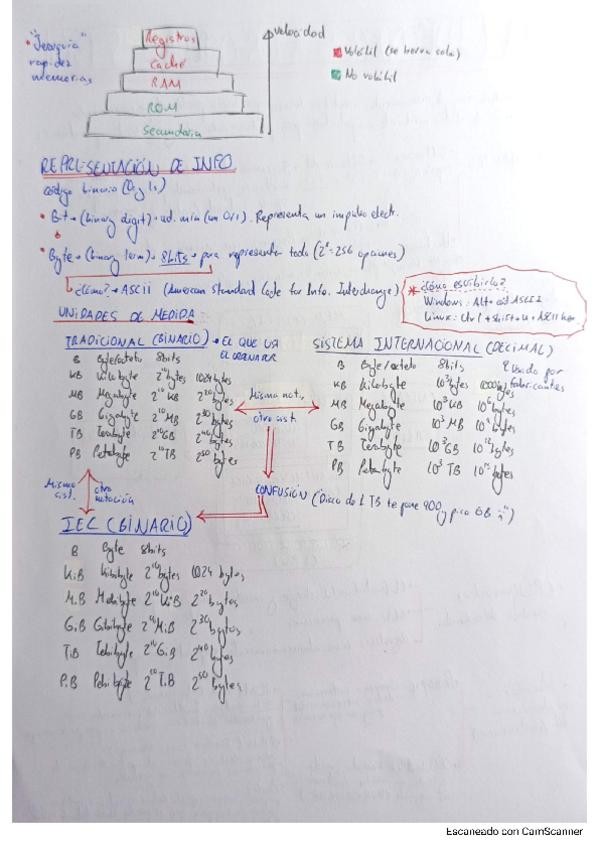 "Jerarquía"
rapidez
memorias
Registros
Caché
RAM
ROM
Secundaria
velocidad
Volátil (se borra sola)
No volátil
REPRESENTACIÓN DE INFO
Código binario (0 y 1s)
• Bit → (binary digit) → ud. mín (un 0/1). Representa un impulso electr.
• Byte → (binary term) → 8bits → para representar todo (2⁸=256 opciones)
¿Cómo? → ASCII (American Standard Code for Info. Interchange)
* ¿Cómo escribirlo?
Windows: Alt + cod ASCII
Linux: Ctrl + shift + u + ASCII hex
UNIDADES DE MEDIDA
TRADICIONAL (BINARIO) → EL QUE USA
EL ORDENADOR
B Byte/octeto 8bits
KB Kilobyte 2¹⁰bytes 1024 bytes
MB Megabyte 2¹⁰ KB 2²⁰bytes
GB Gigabyte 2¹⁰MB 2³⁰bytes
TB Terabyte 2¹⁰GB 2⁴⁰bytes
PB Petabyte 2¹⁰TB 2⁵⁰bytes
Misma not.,
otro sist.
SISTEMA INTERNACIONAL (DECIMAL)
Usado por
fabricantes
B Byte/octeto 8bits
KB Kilobyte 10³bytes 1000bytes
MB Megabyte 10³KB 10⁶bytes
GB Gigabyte 10³MB 10⁹bytes
TB Terabyte 10³GB 10¹²bytes
PB Petabyte 10³ TB 10¹⁵bytes
Mismo
sist.
otra
notación
CONFUSIÓN ("Disco de 1 TB te pone 900 y pico GB
IEC (BINARIO)
B Byte 8bits
KiB Kibibyte 2¹⁰bytes 1024 bytes
MiB Mebibyte 2¹⁰KiB 2²⁰bytes
GiB Gibibyte 2¹⁰MiB 2³⁰bytes
TiB Tebibyte 2¹⁰GiB 2⁴⁰bytes
PiB Pebibyte 2¹⁰TiB 2⁵⁰bytes
Escaneado con CamScanner